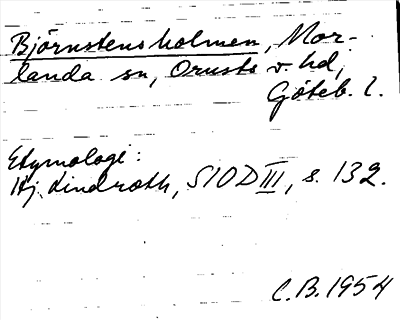 Björnstensholmen, Mor-
landa sn, Orusts v. hd,
Göteb. l.
Etymologi:
Hj. Lindroth, SIOD III, s. 132.
C.B. 1954